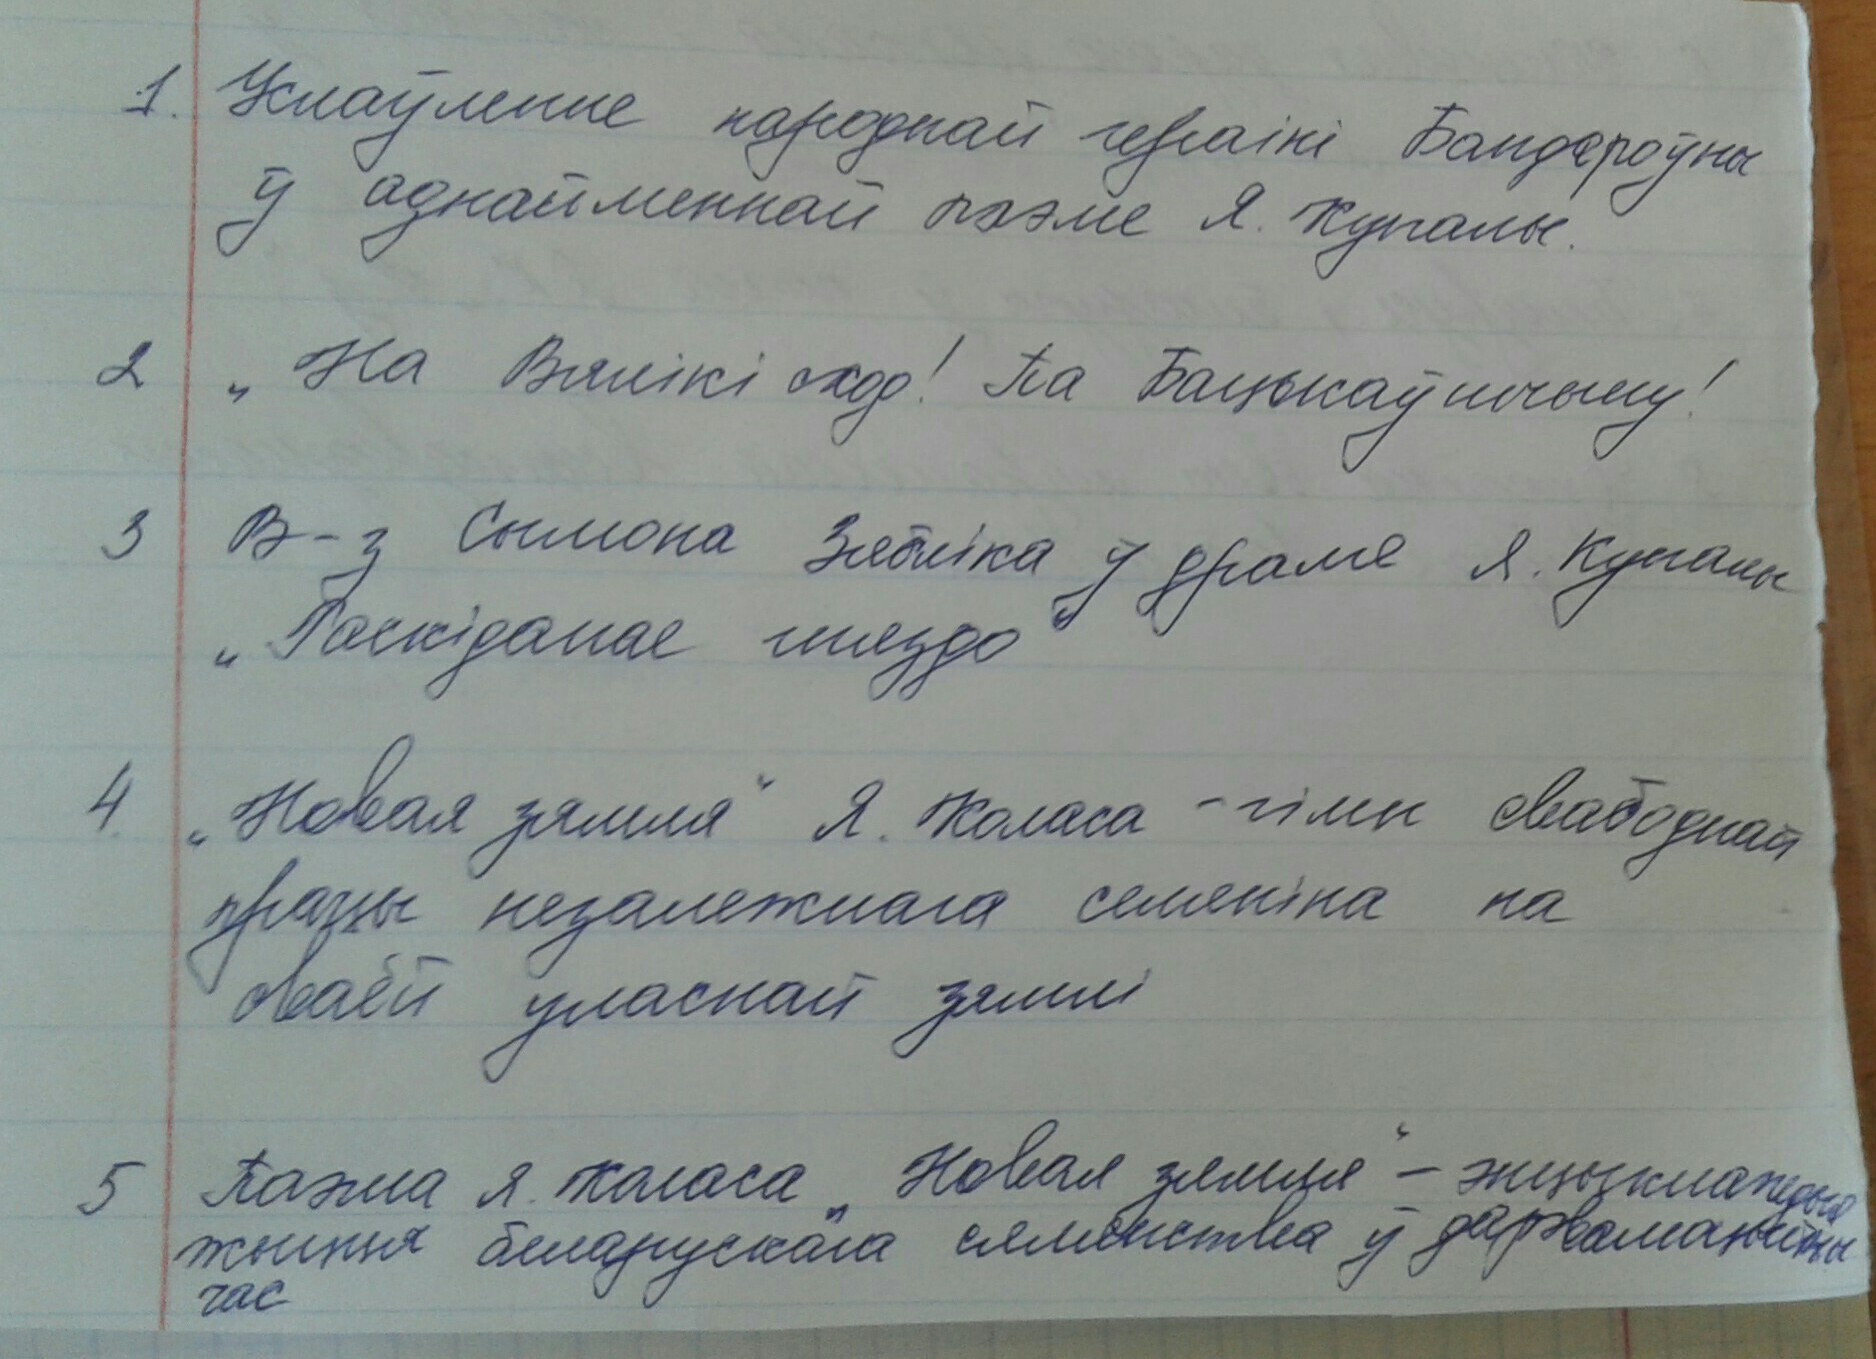 1. Услаўленне народнай гераіні Бандароўны
ў аднайменнай паэме Я. Купалы.
2 „На Вялікі сход! Па Бацькаўшчыну!
3 В-з Сымона Зябліка ў драме Я. Купалы
„Раскіданае гняздо“
4 „Новая зямля“ Я. Коласа – гімн свабоднай
працы незалежнага селяніна на
сваёй уласнай зямлі
5 Паэма Я. Коласа „Новая зямля“ – энцыклапедыя
жыцця беларускага сялянства ў дарэвалюцыйны
час